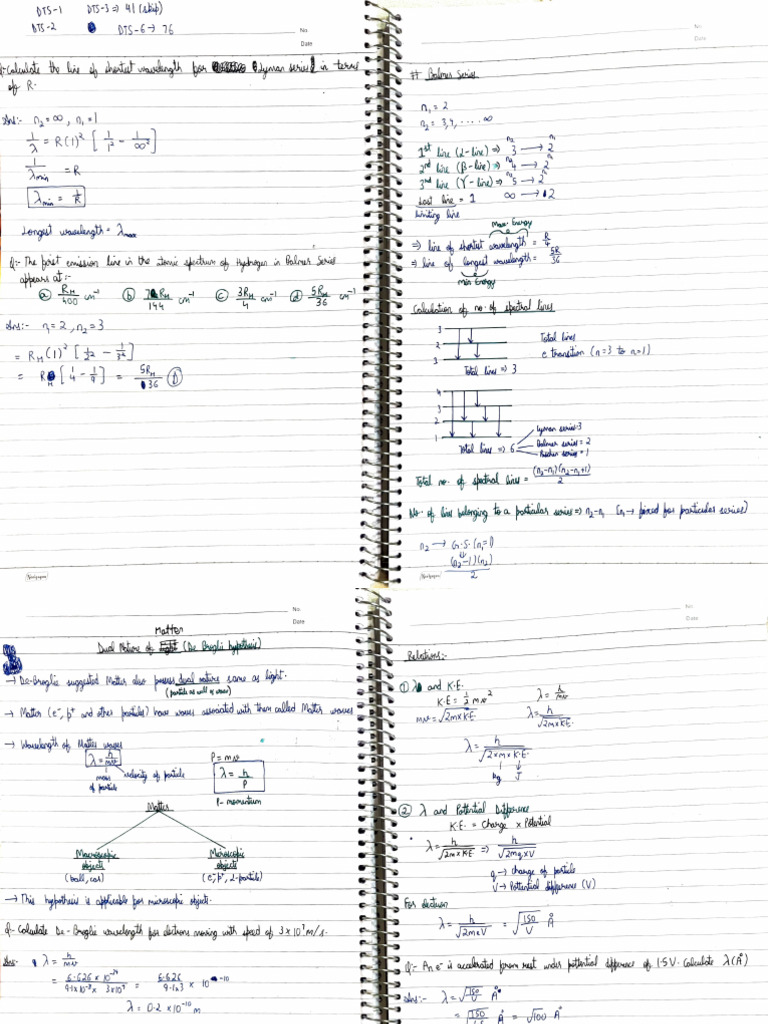 DTS-1 DTS-3 ⇒ 41 (skip)
DTS-2 DTS-6 → 76
No.
Date
Q:- Calculate the line of shortest wavelength for Lyman series in terms
of R.
Ans:- n₂ = ∞, n₁ = 1
1/λ = R(1)² [1/1² - 1/∞²]
1/λmin = R
λmin = 1/R
Longest wavelength = λmax
Q:- The first emission line in the atomic spectrum of Hydrogen in Balmer Series
appears at:-
(a) RH/400 cm⁻¹ (b) 7RH/144 cm⁻¹ (c) 3RH/4 cm⁻¹ (d) 5RH/36 cm⁻¹
Ans:- n₁ = 2, n₂ = 3
= RH(1)² [1/2² - 1/3²]
= RH [1/4 - 1/9] = 5RH/36 (D)
No.
Date
# Balmer Series
n₁ = 2
n₂ = 3, 4, .... ∞
n₂ n₁
1st line (α-line) ⇒ 3 → 2
2nd line (β-line) ⇒ 4 → 2
3rd line (γ-line) ⇒ 5 → 2
Last line = 1 ∞ → 2
Limiting line
Max. Energy
⇒ line of shortest wavelength = R/4
⇒ line of longest wavelength = 5R/36
min Energy
Calculation of no. of spectral lines
3
2
3
Total lines
e transition (n=3 to n=1)
Total lines ⇒ 3
4
3
2
1
Total lines ⇒ 6
Lyman series: 3
Balmer series = 2
Paschen series = 1
Total no. of spectral lines = (n₂-n₁)(n₂-n₁+1)/2
No. of lines belonging to a particular series ⇒ n₂-n₁ (n₁ → fixed for particular series)
n₂ → G.S. (n₁=1)
(n₂-1)(n₂)/2
No.
Date
Matter
Dual Nature of Light (De Broglie hypothesis)
→ De-Broglie suggested Matter also possess dual nature same as light.
(particle as well as wave)
→ Matter (e⁻, p⁺ and other particles) have waves associated with them called Matter waves
→ Wavelength of Matter waves
λ = h/mv
mass of particle
velocity of particle
P = mv
λ = h/P
P - momentum
Matter
Macroscopic objects
(ball, car)
Microscopic objects
(e⁻, p⁺, α-particle)
→ This hypothesis is applicable for microscopic objects.
Q:- Calculate De-Broglie wavelength for electrons moving with speed of 3 × 10⁷ m/s.
Ans:- λ = h/mv
λ = 0.2 × 10⁻¹⁰ m
No.
Date
Relations:-
① λ and K.E.
K.E = 1/2 mv²
λ = h/mv
mv = √2m×K.E.
λ = h/√2m×K.E.
λ = h/√2×m×K.E.
kg J
② λ and Potential Difference
K.E. = Charge × Potential
λ = h/√2m×K.E ⇒ h/√2mq×V
q → charge of particle
V → Potential difference (V)
For electron
λ = h/√2meV = √150/V Å
Q:- An e⁻ is accelerated from rest under potential difference of 1.5V. Calculate λ(Å)
Ans:- λ = √150/V Å
= √150/1.5 Å = √100 Å